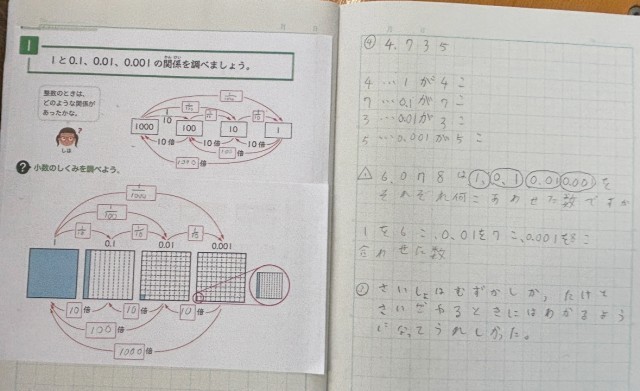 1
1と0.1、0.01、0.001の関係を調べましょう。
かんけい
整数のときは、
どのような関係が
あったかな。
しほ
1/10
1000 100 10 1
10倍 10倍 10倍
100倍
1000倍
? 小数のしくみを調べよう。
1/1000
1/100
1/10 1/10 1/10
1 0.1 0.01 0.001
10倍 10倍 10倍
100倍
1000倍
④ 4.735
4…1が4こ
7…0.1が7こ
3…0.01が3こ
5…0.001が5こ
6.078は1,0.1 0.01 0.001を
それぞれ何こあわせた数ですか
1を6こ、0.01を7こ、0.001を8こ
合わせた数
さいしょはむずかしか、たけど
さいごやるときにはわかるよう
になってうれしかった。